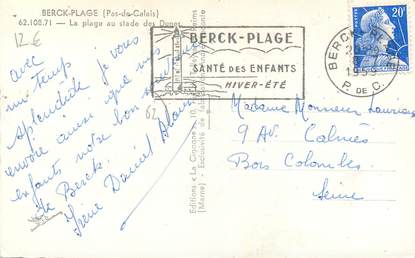 BERCK-PLAGE (Pas-de-Calais)
62.108.71 — La plage au stade des Dunes
12 €
avec
un temps
splendide je vous
envoie ainsi que mes
enfants notre bon souvenir
de Berck.
Irène Daniel Alain
62
Editions « La Cigogne »
(Marne) - Exclusivité de
BERCK-PLAGE
SANTÉ DES ENFANTS
HIVER-ÉTÉ
BERCK
1959
P. DE C.
20F
Madame Monsieur
9 AV. Calmés
Bois Colombes
Seine